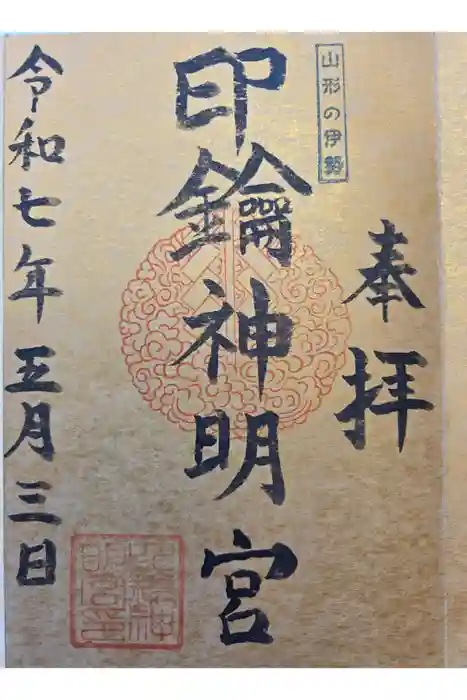 奉拝
山形の伊勢
印鑰神明宮
令和七年五月三日